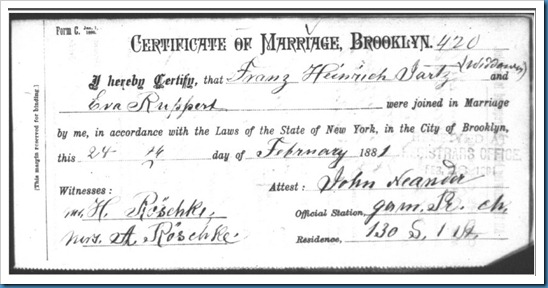 Form C. Jan. 1, 1880.
CERTIFICATE OF MARRIAGE, BROOKLYN. 420
I hereby Certify, that Franz Heinrich Jartz (Widdower) and
Eva Ruppert were joined in Marriage
by me, in accordance with the Laws of the State of New York, in the City of Brooklyn,
this 24 th day of February 1881
REGISTRARS OFFICE
Witnesses:
Attest: John Neander
Mr. H. Röschke,
Official Station, germ. Pr. ch.
Mrs. A Röschke
Residence, 130 S. 1 st.
(This margin reserved for binding.)